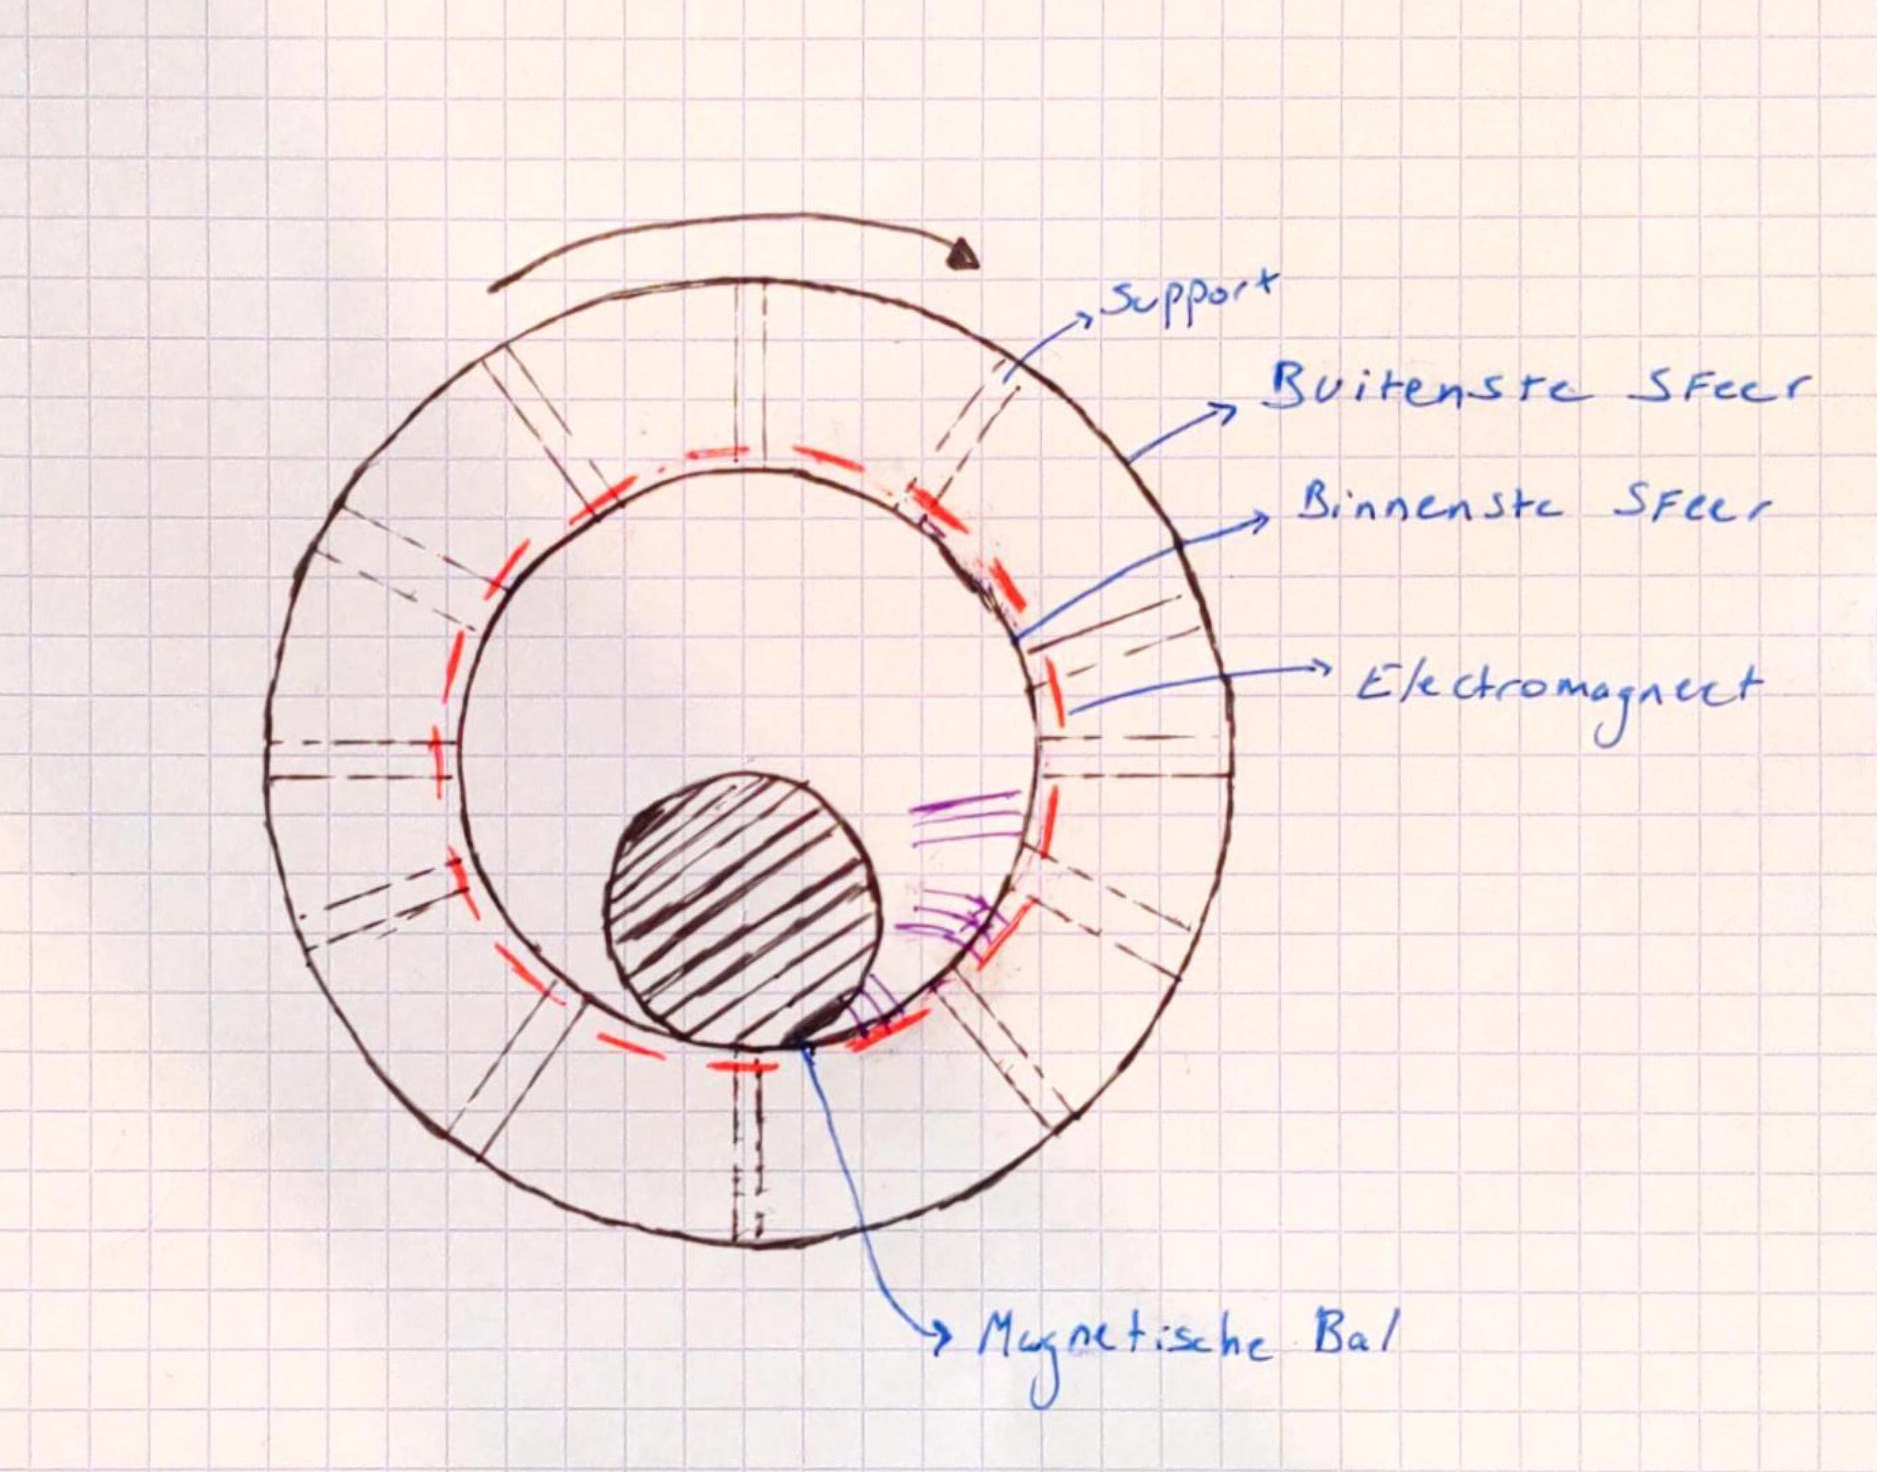 Support
Buitenste Sfeer
Binnenste Sfeer
Electromagneet
Magnetische Bal